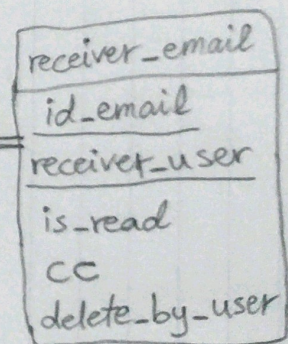 receiver_email
id_email
receiver_user
is_read
CC
delete_by_user